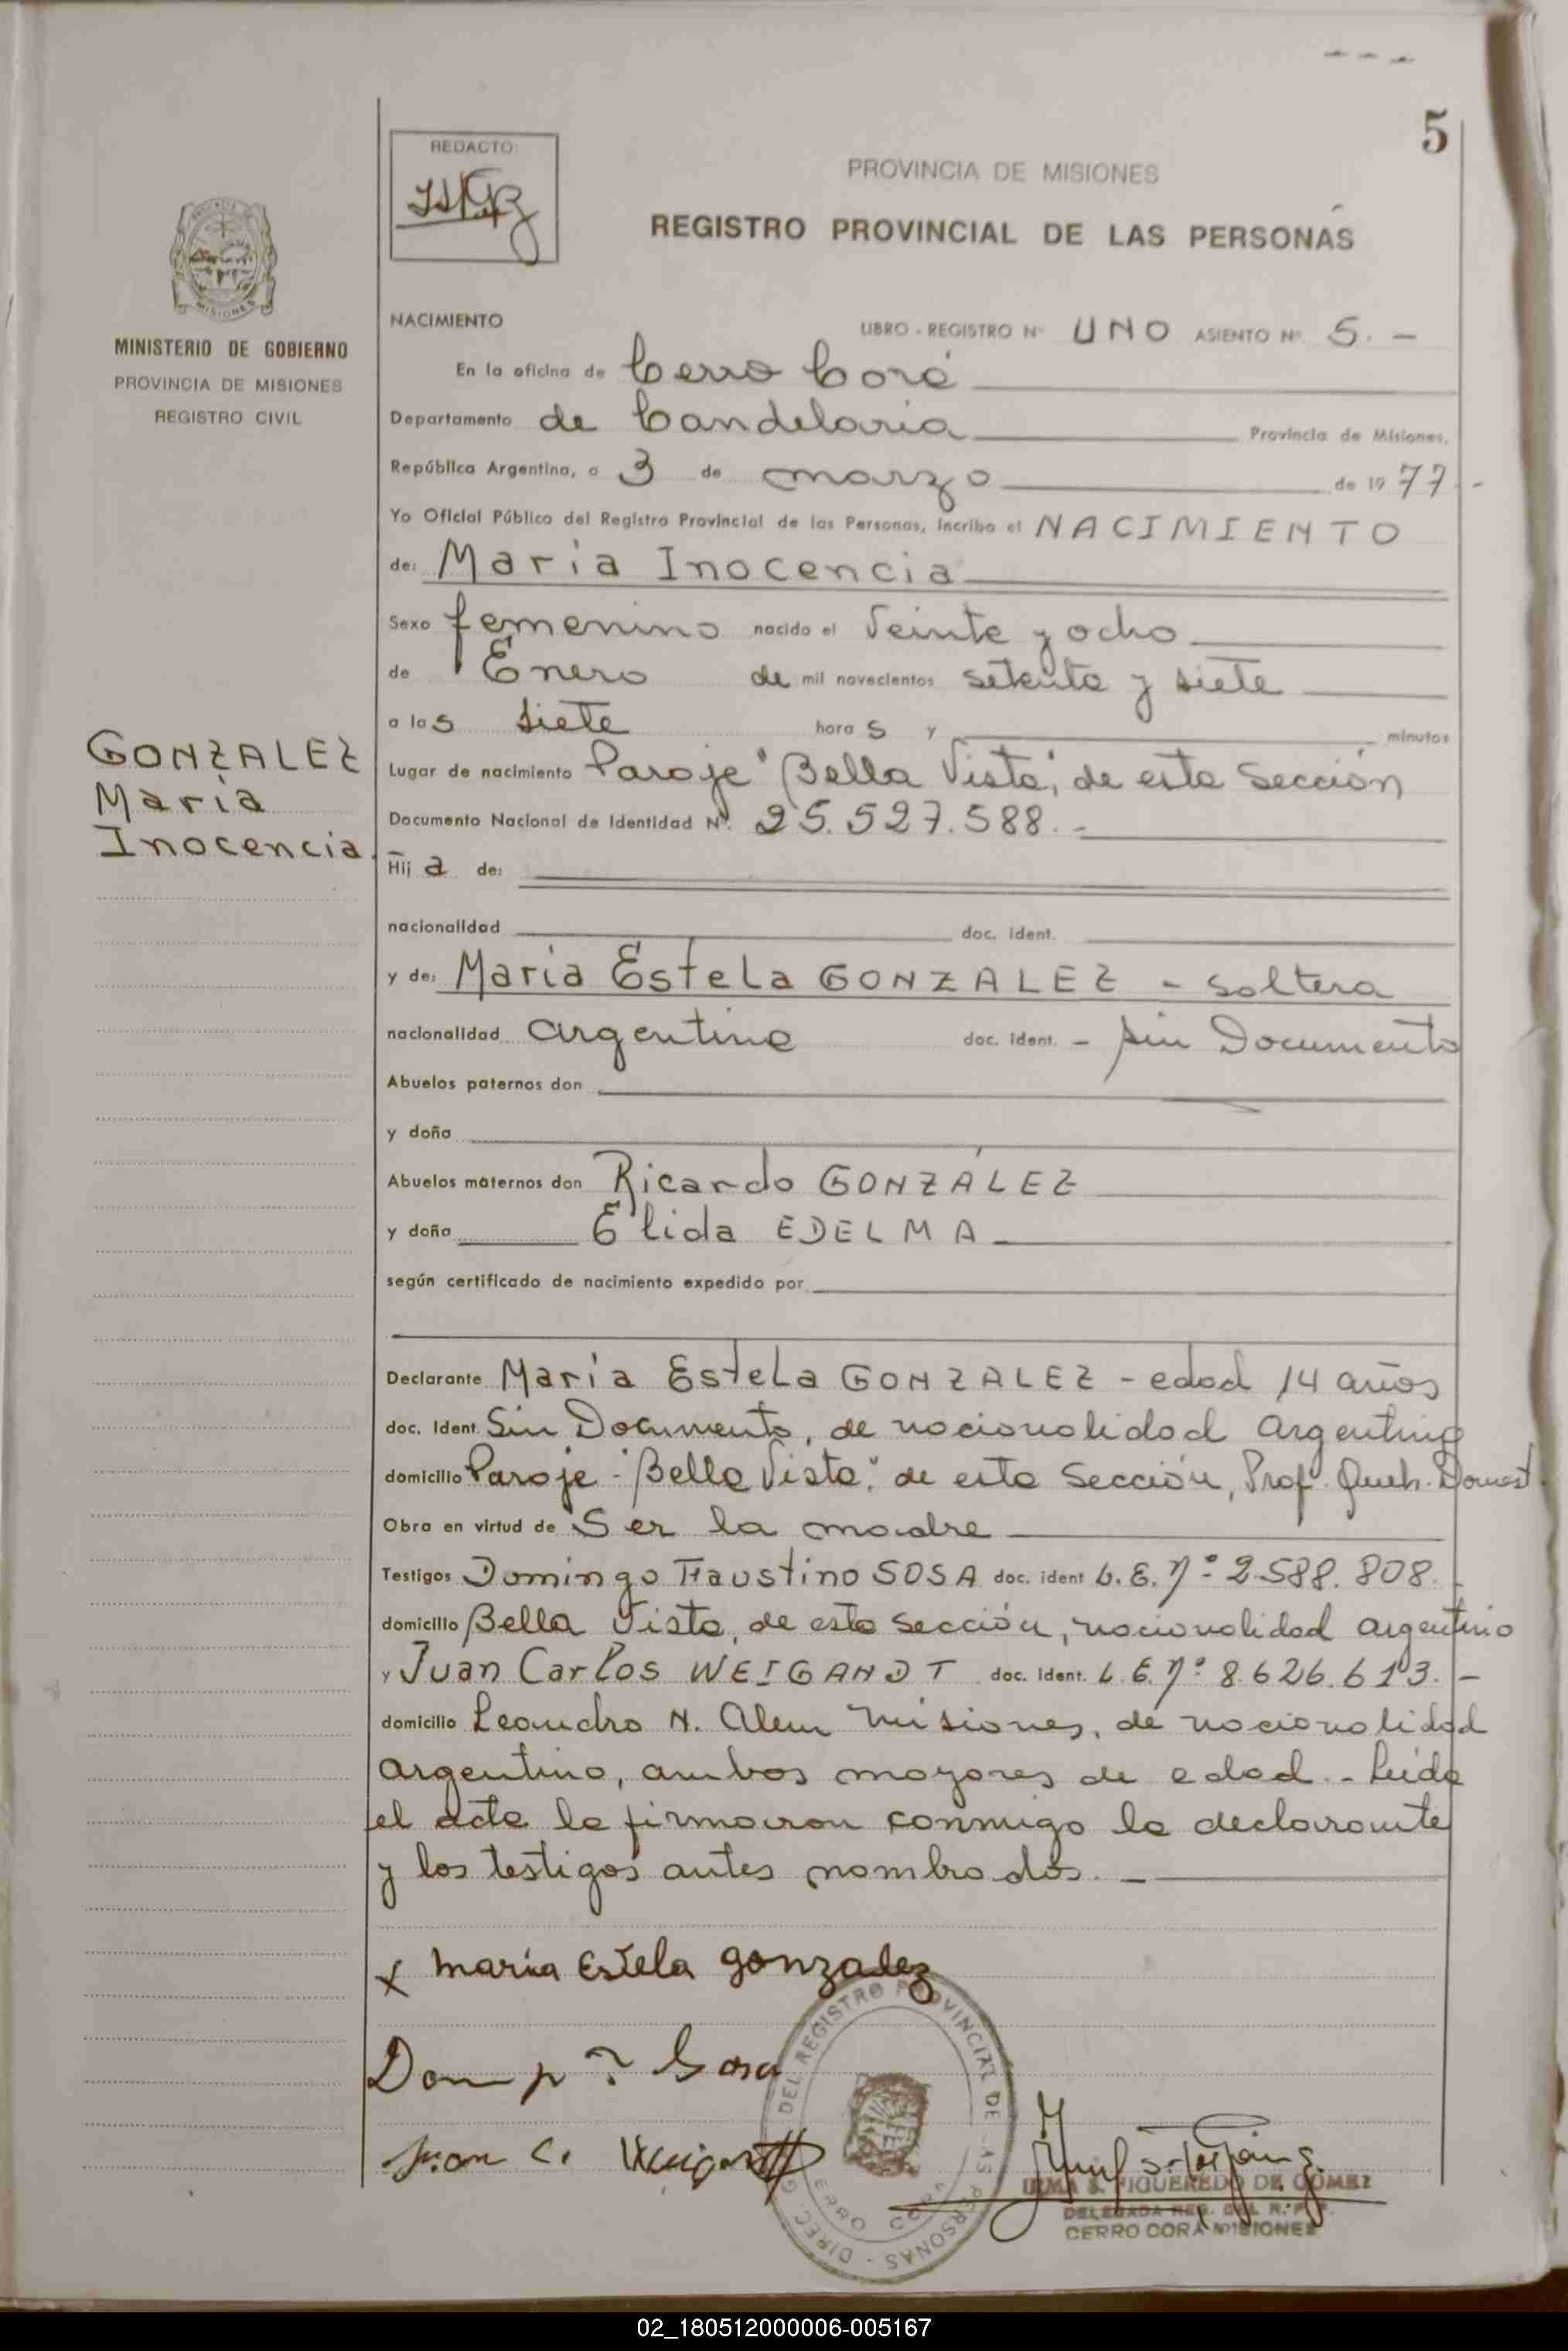 5
REDACTO:
PROVINCIA DE MISIONES
REGISTRO PROVINCIAL DE LAS PERSONAS
MISIONES
MINISTERIO DE GOBIERNO
PROVINCIA DE MISIONES
REGISTRO CIVIL
NACIMIENTO LIBRO - REGISTRO Nº UNO ASIENTO Nº 5. -
En la oficina de Cerro Corá
Departamento de Candelaria Provincia de Misiones,
República Argentina, a 3 de marzo de 1977.-
Yo Oficial Público del Registro Provincial de las Personas, incribo el NACIMIENTO
de: María Inocencia
Sexo femenino nacido el Veinte y ocho
de Enero de mil novecientos setenta y siete
a las siete horas y minutos
GONZALEZ
María
Inocencia.
Lugar de nacimiento Paraje "Bella Vista", de esta Sección
Documento Nacional de Identidad Nº. 25.527.588.-
Hija de:
nacionalidad doc. ident.
y de: María Estela GONZALEZ - soltera
nacionalidad argentina doc. ident. - sin Documento
Abuelos paternos don
y doña
Abuelos maternos don Ricardo GONZÁLEZ
y doña Elida EDELMA
según certificado de nacimiento expedido por
Declarante María Estela GONZALEZ - edad 14 años
doc. ident. Sin Documento, de nacionalidad argentina
domicilio Paraje "Bella Vista" de esta Sección, Prof. Queh. Domest.
Obra en virtud de Ser la madre
Testigos Domingo Faustino SOSA doc. ident L.E. Nº 2.588.808.
domicilio Bella Vista, de esta Sección, nacionalidad argentino
y Juan Carlos WEIGANDT doc. ident. L.E. Nº 8.626.613. -
domicilio Leandro N. Alem Misiones, de nacionalidad
argentino, ambos mayores de edad.- Leída
el acta la firmaron conmigo la declarante
y los testigos antes nombrados. -
x maría Estela gonzalez
Sosa
Juan C.
DIREC. G DEL REGISTRO PROVINCIAL DE LAS PERSONAS
CERRO CORA
IRMA S. FIGUEREDO DE GOMEZ
DELEGADA REG. DEL R.P.P.
CERRO CORA MISIONES
02_180512000006-005167